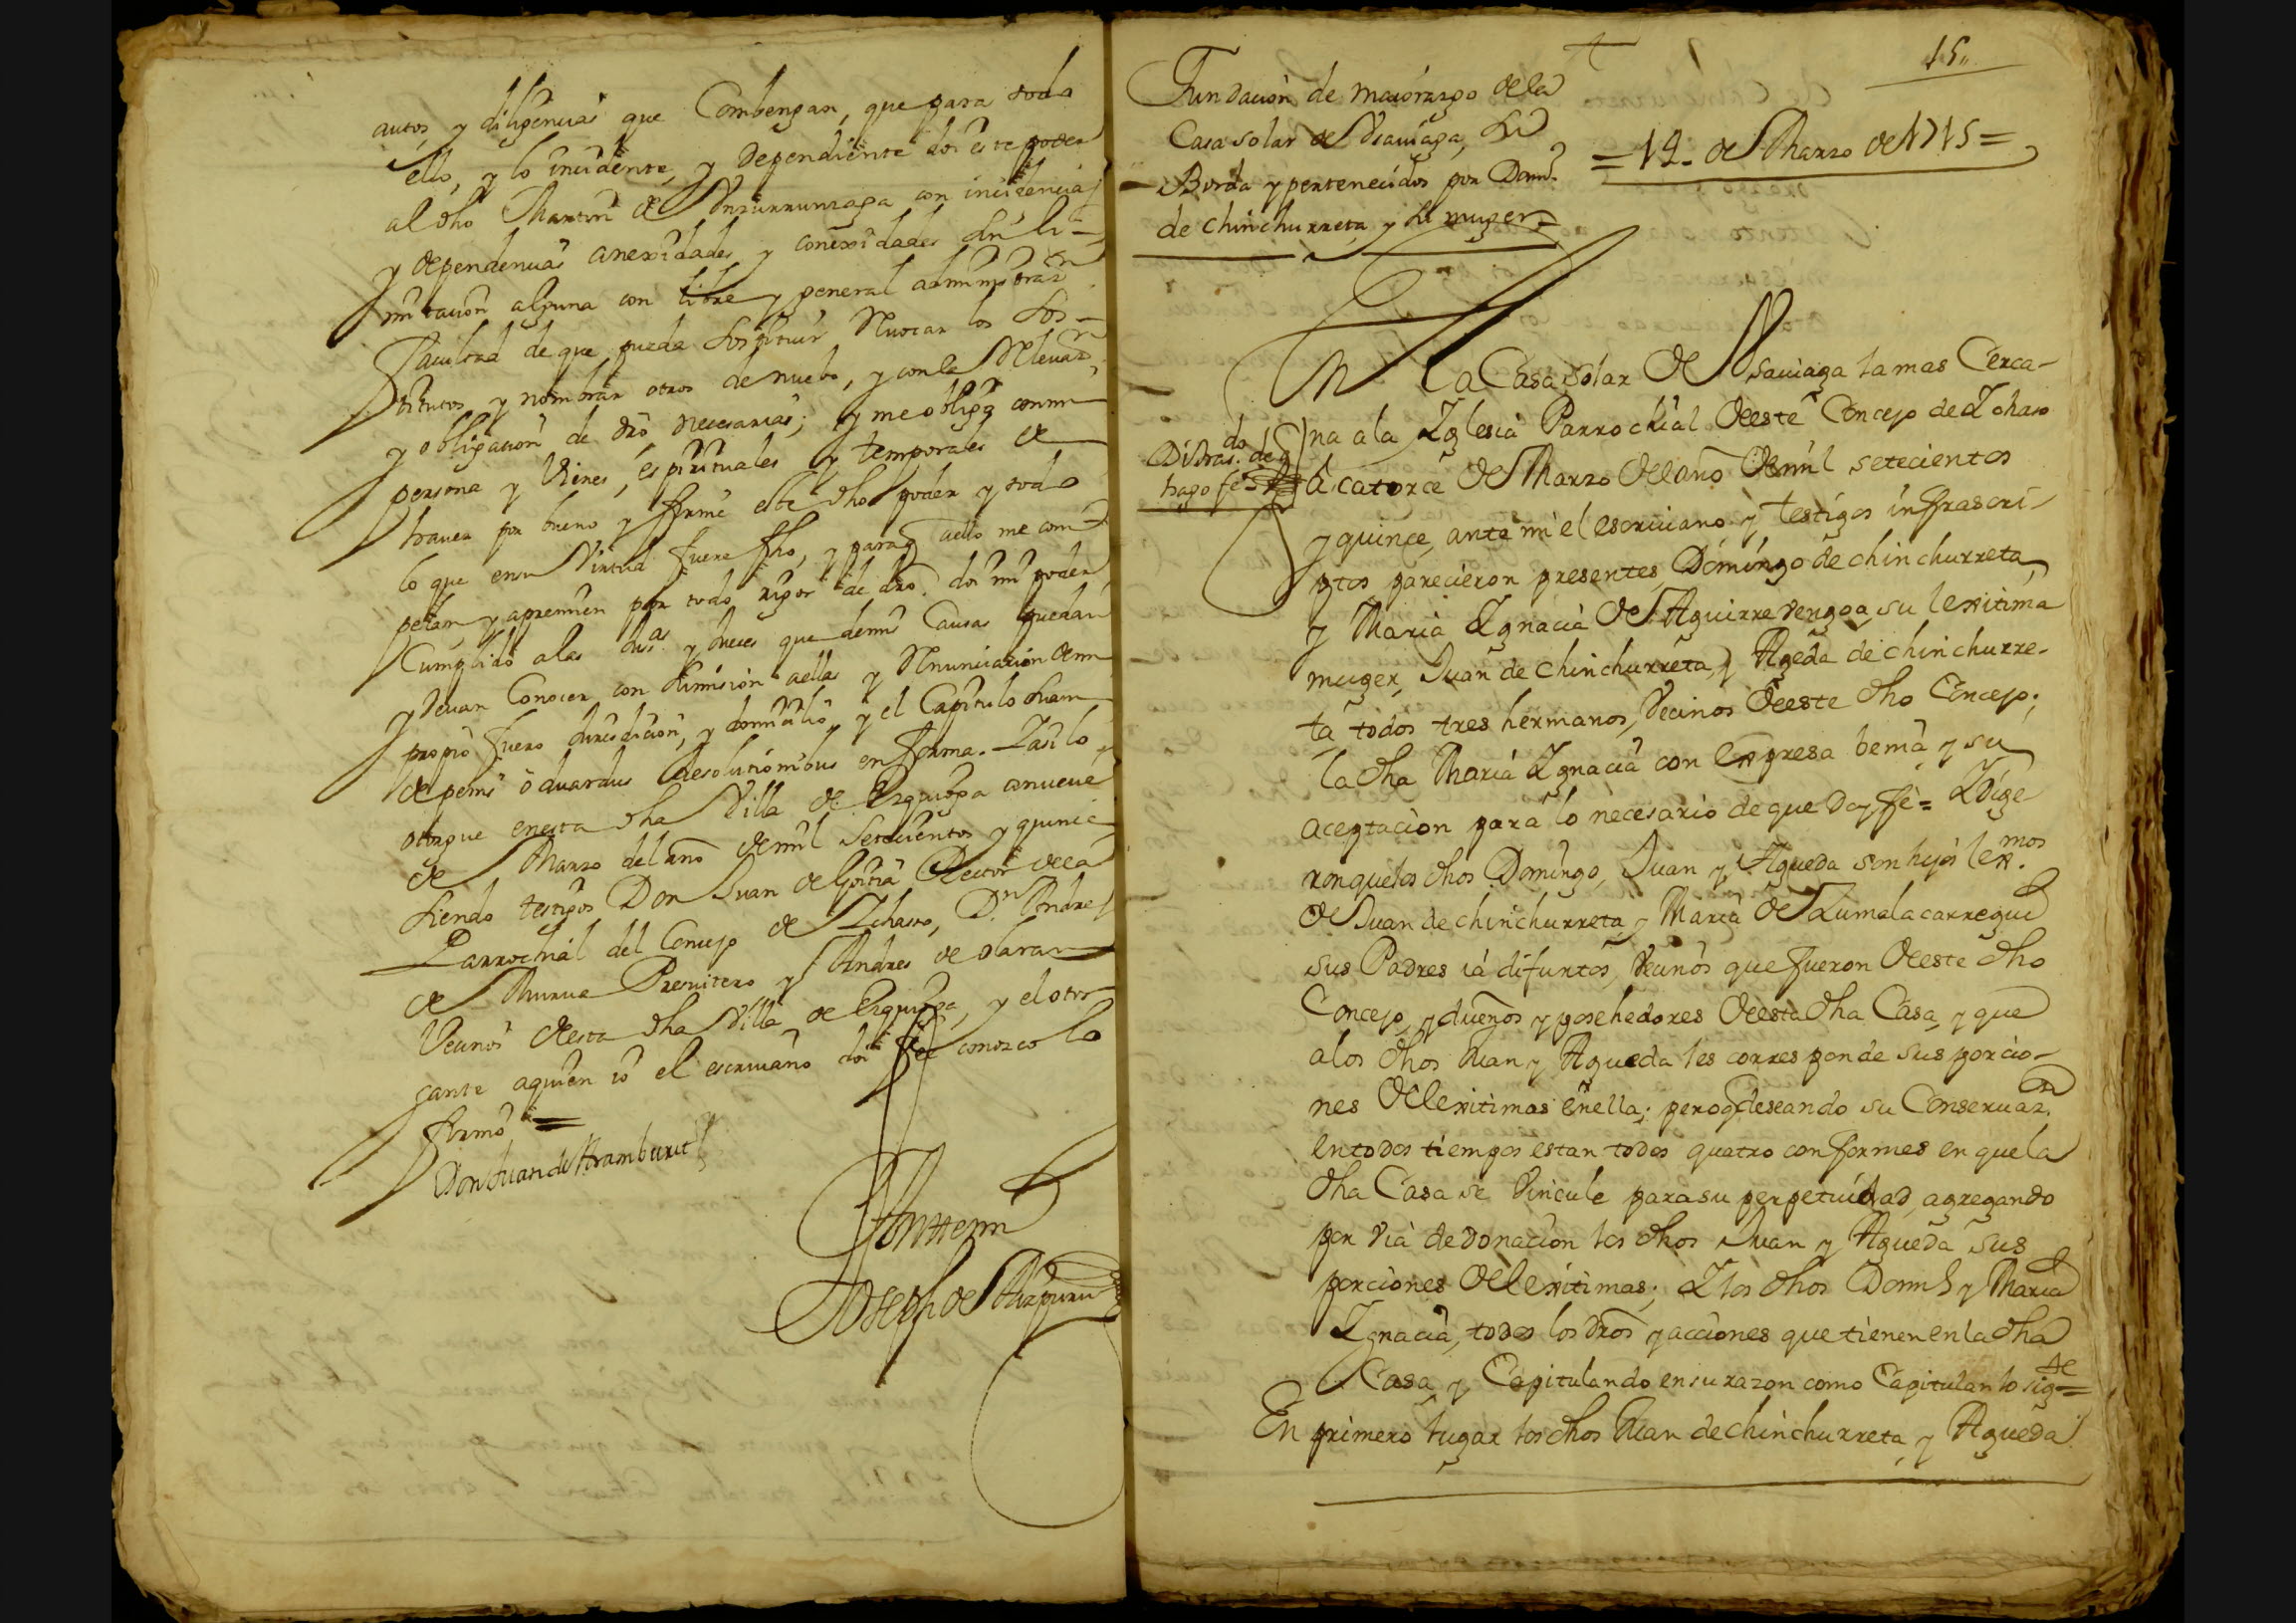 autos, y diligencias que Combengan, que para todo
ello, y lo incidente, y dependiente doi este poder
al dho Martin de Unzurrunzaga con incidencias
y dependencias anexidades y conexidades sin li-
mitacion alguna con libre y general administraz.on
facultad de que pueda sostituir Revocar los sos-
titutos y nombrar otros de nuebo, y con la Relevaz.on
y obligacion de dro necesarias; y me obligo con mi
persona y Vienes, espirituales y temporales de
haver por bueno y firme este dho poder y todo
lo que en su Virtud fuere fho, y para q aello me com-
pelan y apremien por todo rigor de dro. doi mi poder
Cumplido a las Jus.as y Jueces que de mis Causas puedan
y devan Conocer con sumision aellas y Renunciazion de mi
propio fuero Jurisdicion, y domicilio y el Capitulo Oduar-
de penis oduardus de solutionibus en forma. I asi lo
otorgue en esta dha Villa de Ezquioga a nueve
de Marzo del año de mil setecientos y quince
siendo testigos Don Juan de Goitia Rector de la
Parrochial del Concejo de Ichaso, D.n Andres
de Murua Presvitero y Andres de Olaran
Vecinos de esta dha Villa de Ezquioga, y el otor-
gante aquien io el escriuano doi fee conozco lo
firmo =
Don Juan de Aramburu
Ante mi
Joseph de Aizpuru
15
Fundacion de maiorazgo de la
Casa solar de Usauiaga, su
Borda y pertenecidos por Dom.o
de Chinchurreta y su muger =
= 14 - de Marzo de 1715 =
En la Casa solar de Usauiaga la mas Cerca-
na a la Iglesia Parrochial de este Concejo de Ichaso
à catorce de Marzo del año de mil setecientos
y quince, ante mi el escriuano y testigos infrascri-
ptos parecieron presentes Domingo de chinchurreta,
y Maria Ignacia de Aguirrevengoa, su lexitima
muger, Juan de chinchurreta, y Ageda de chinchurre-
ta todos tres hermanos, Vecinos de este dho Concejo;
la dha Maria Ignacia con expresa benia y su
aceptacion para lo necesario de que Doy fè = I dige-
ron que los dhos Domingo, Juan y Agueda son hijos lex.mos
de Juan de chinchurreta, y Maria de Zumalacarregui
sus Padres ià difuntos, Vecinos que fueron de este dho
Concejo, y dueños y posehedores de esta dha Casa, y que
a los dhos Juan y Agueda les corresponde sus porcio-
nes de lexitimas en ella; pero q deseando su Conseruaz.on
en todos tiempos estan todos quatro conformes en que la
dha Casa se Vincule para su perpetuidad, agregando
por via de donacion los dhos Juan y Agueda sus
porciones de lexitimas; I los dhos Dom.o y Maria
Ignacia, todos los dros y acciones que tienen en la dha
Casa, y Capitulando en su razon como Capitulan lo sig.te =
En primero lugar los dhos Juan de chinchurreta, y Agueda